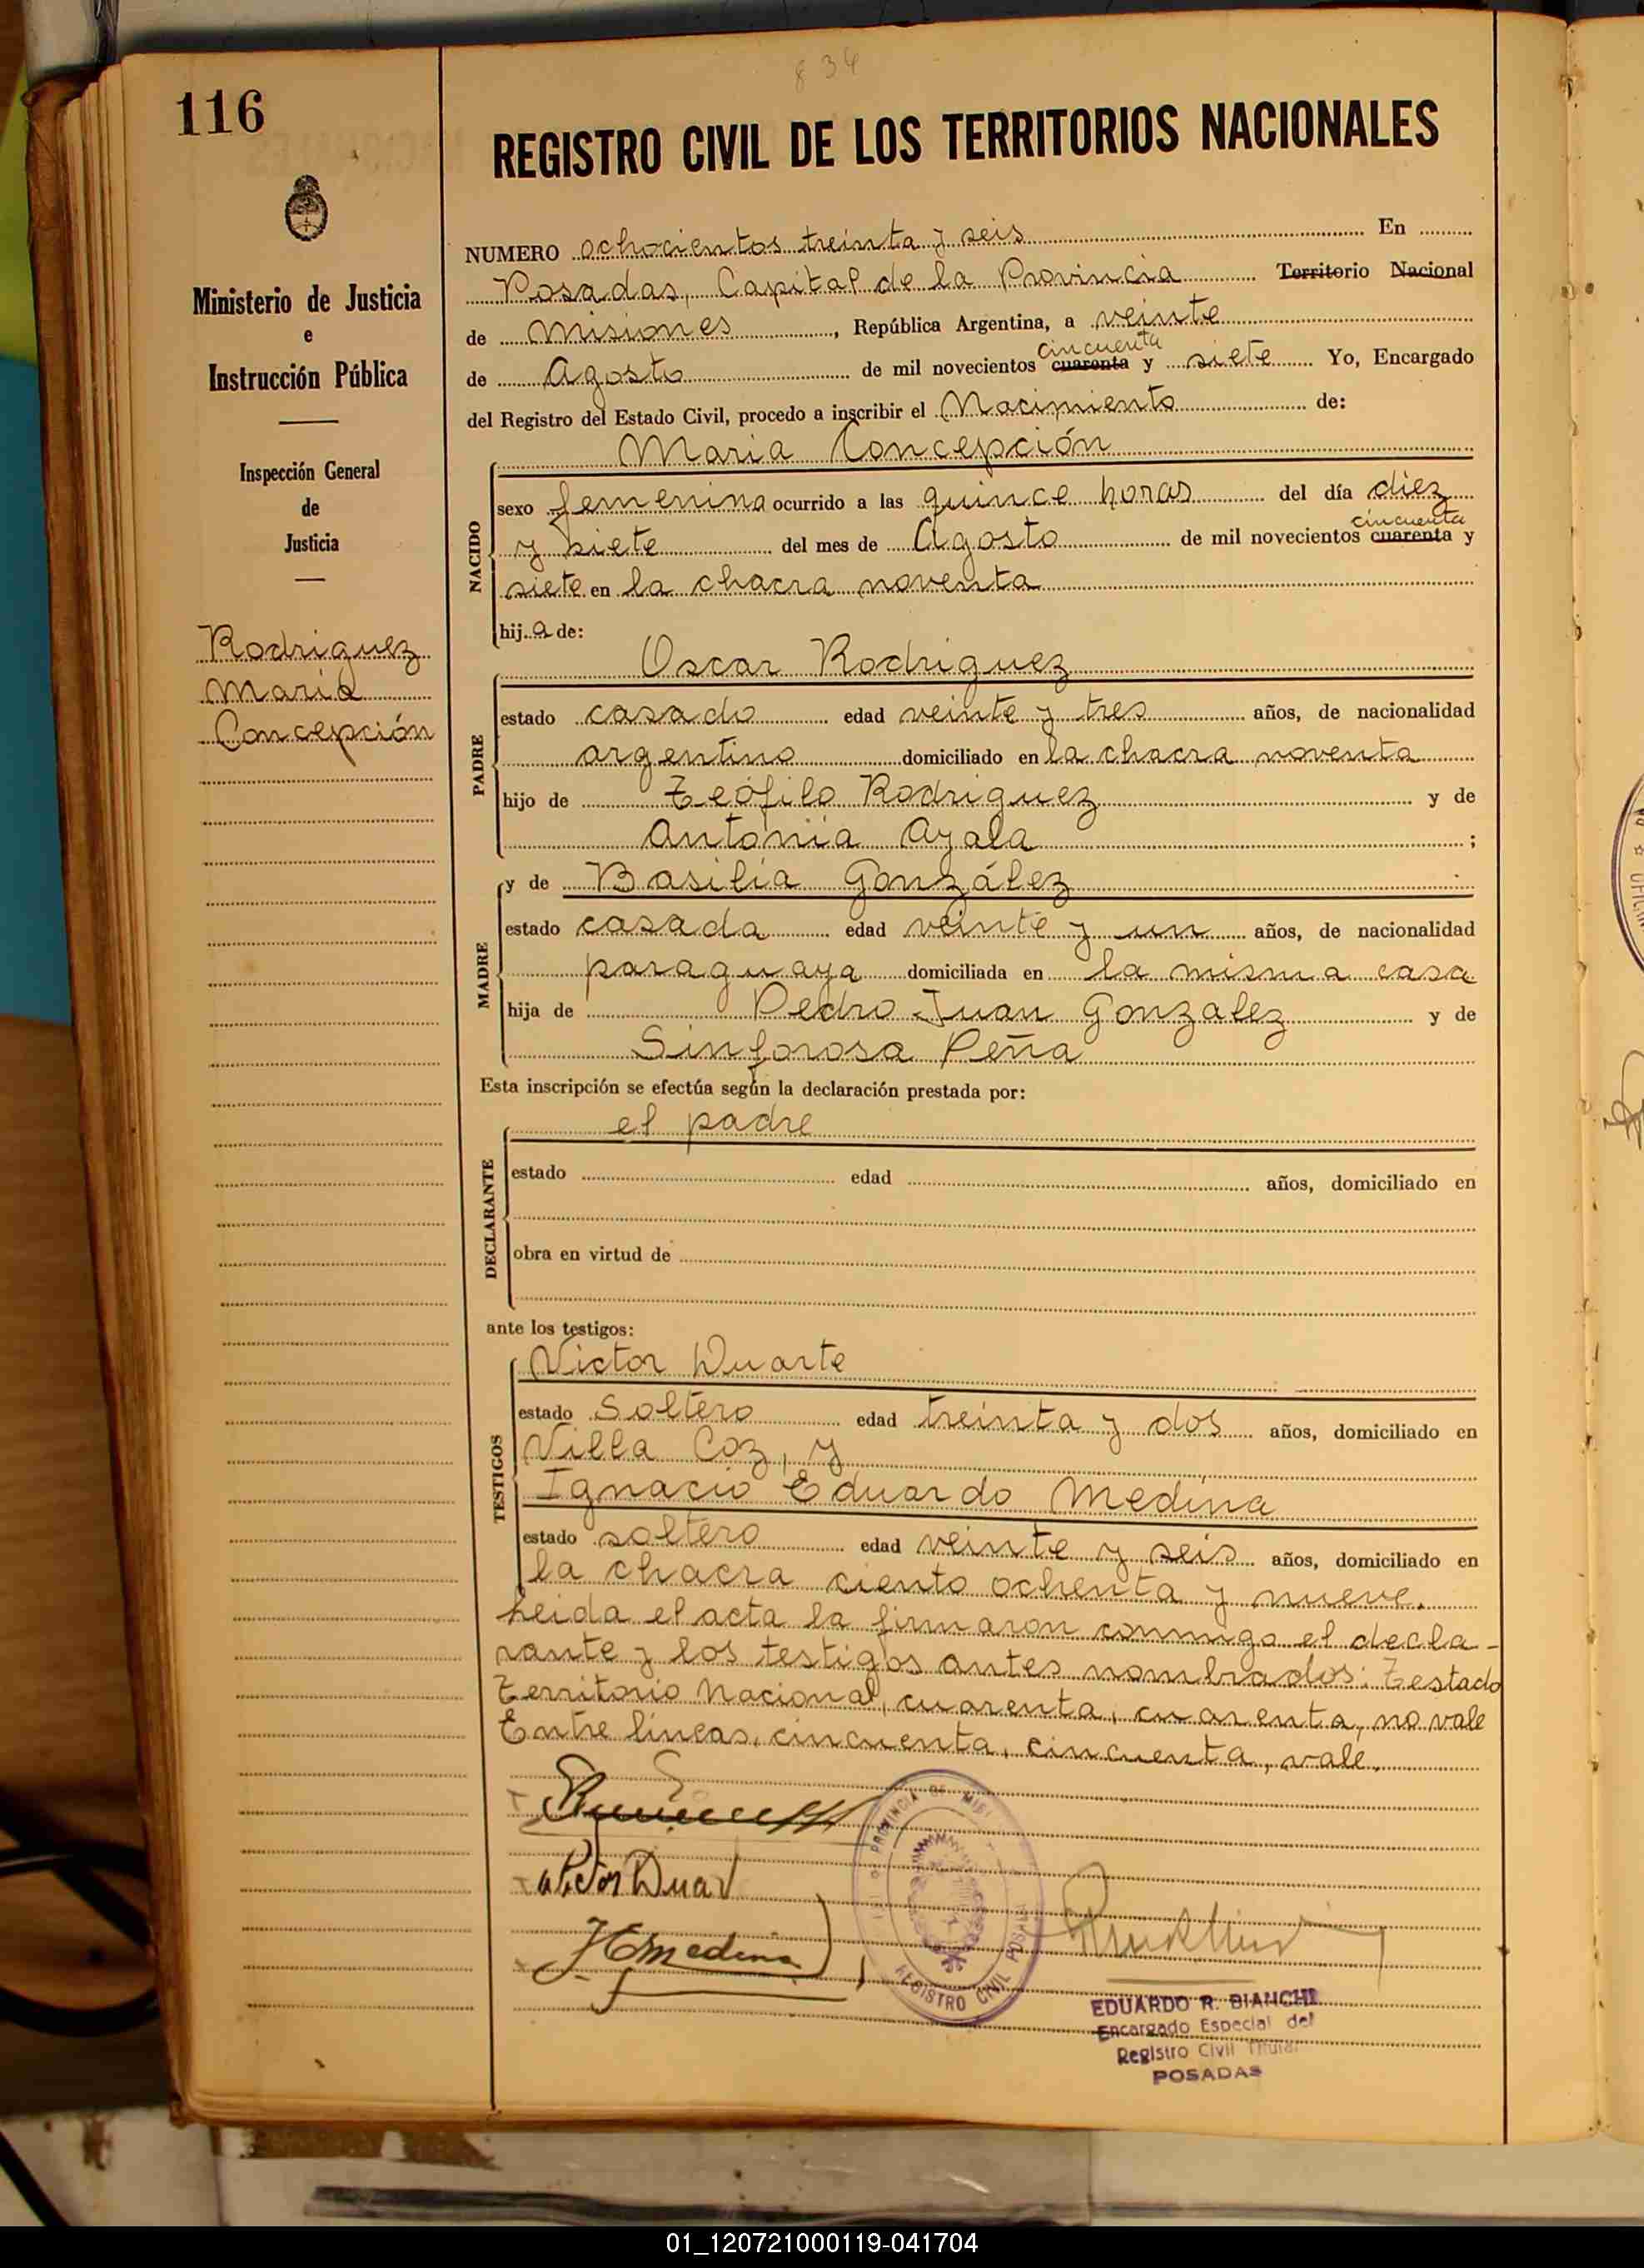 116
834
REGISTRO CIVIL DE LOS TERRITORIOS NACIONALES
Ministerio de Justicia
e
Instrucción Pública
Inspección General
de
Justicia
Rodriguez
Maria
Concepción
NUMERO ochocientos treinta y seis En
Posadas, Capital de la Provincia Territorio Nacional
de Misiones, República Argentina, a veinte
cincuenta
de Agosto de mil novecientos cuarenta y siete Yo, Encargado
del Registro del Estado Civil, procedo a inscribir el Nacimiento de:
NACIDO
Maria Concepción
sexo femenino ocurrido a las quince horas del día diez
cincuenta
y siete del mes de Agosto de mil novecientos cuarenta y
siete en la chacra noventa
hija de:
PADRE
Oscar Rodriguez
estado casado edad veinte y tres años, de nacionalidad
argentino domiciliado en la chacra noventa
hijo de Teófilo Rodriguez y de
Antonia Ayala ;
MADRE
y de Basilia González
estado casada edad veinte y un años, de nacionalidad
paraguaya domiciliada en la misma casa
hija de Pedro Juan González y de
Sinforosa Peña
Esta inscripción se efectúa según la declaración prestada por:
DECLARANTE
el padre
estado edad años, domiciliado en
obra en virtud de
ante los testigos:
TESTIGOS
Victor Duarte
estado soltero edad treinta y dos años, domiciliado en
Villa Coz, y
Ignacio Eduardo Medina
estado soltero edad veinte y seis años, domiciliado en
la chacra ciento ochenta y nueve.
Leida el acta la firmaron conmigo el decla-
rante y los testigos antes nombrados: Testado
Territorio Nacional, cuarenta, cuarenta, no vale
Entre líneas, cincuenta, cincuenta, vale.
Victor Duar
Medina
PROVINCIA DE MISI
REGISTRO CIVIL POSADAS
EDUARDO R. BIANCHI
Encargado Especial del
Registro Civil Titular
POSADAS
01_120721000119-041704